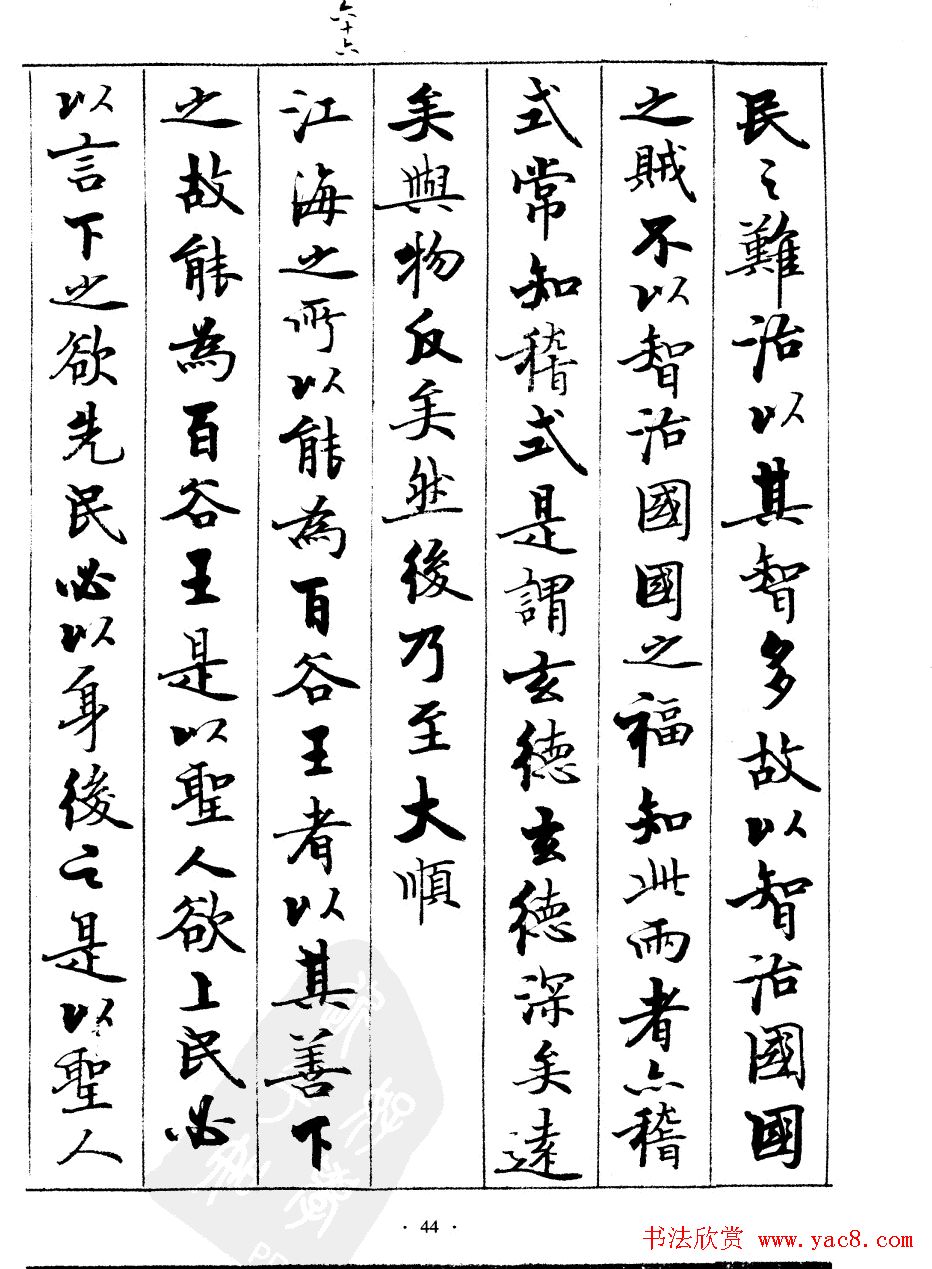 六十六
民之難治以其智多故以智治國國
之賊不以智治國國之福知此兩者亦稽
式常知稽式是謂玄德玄德深矣遠
矣與物反矣然後乃至大順
江海之所以能為百谷王者以其善下
之故能為百谷王是以聖人欲上民必
以言下之欲先民必以身後之是以聖人
· 44 ·
书法欣赏 www.yac8.com